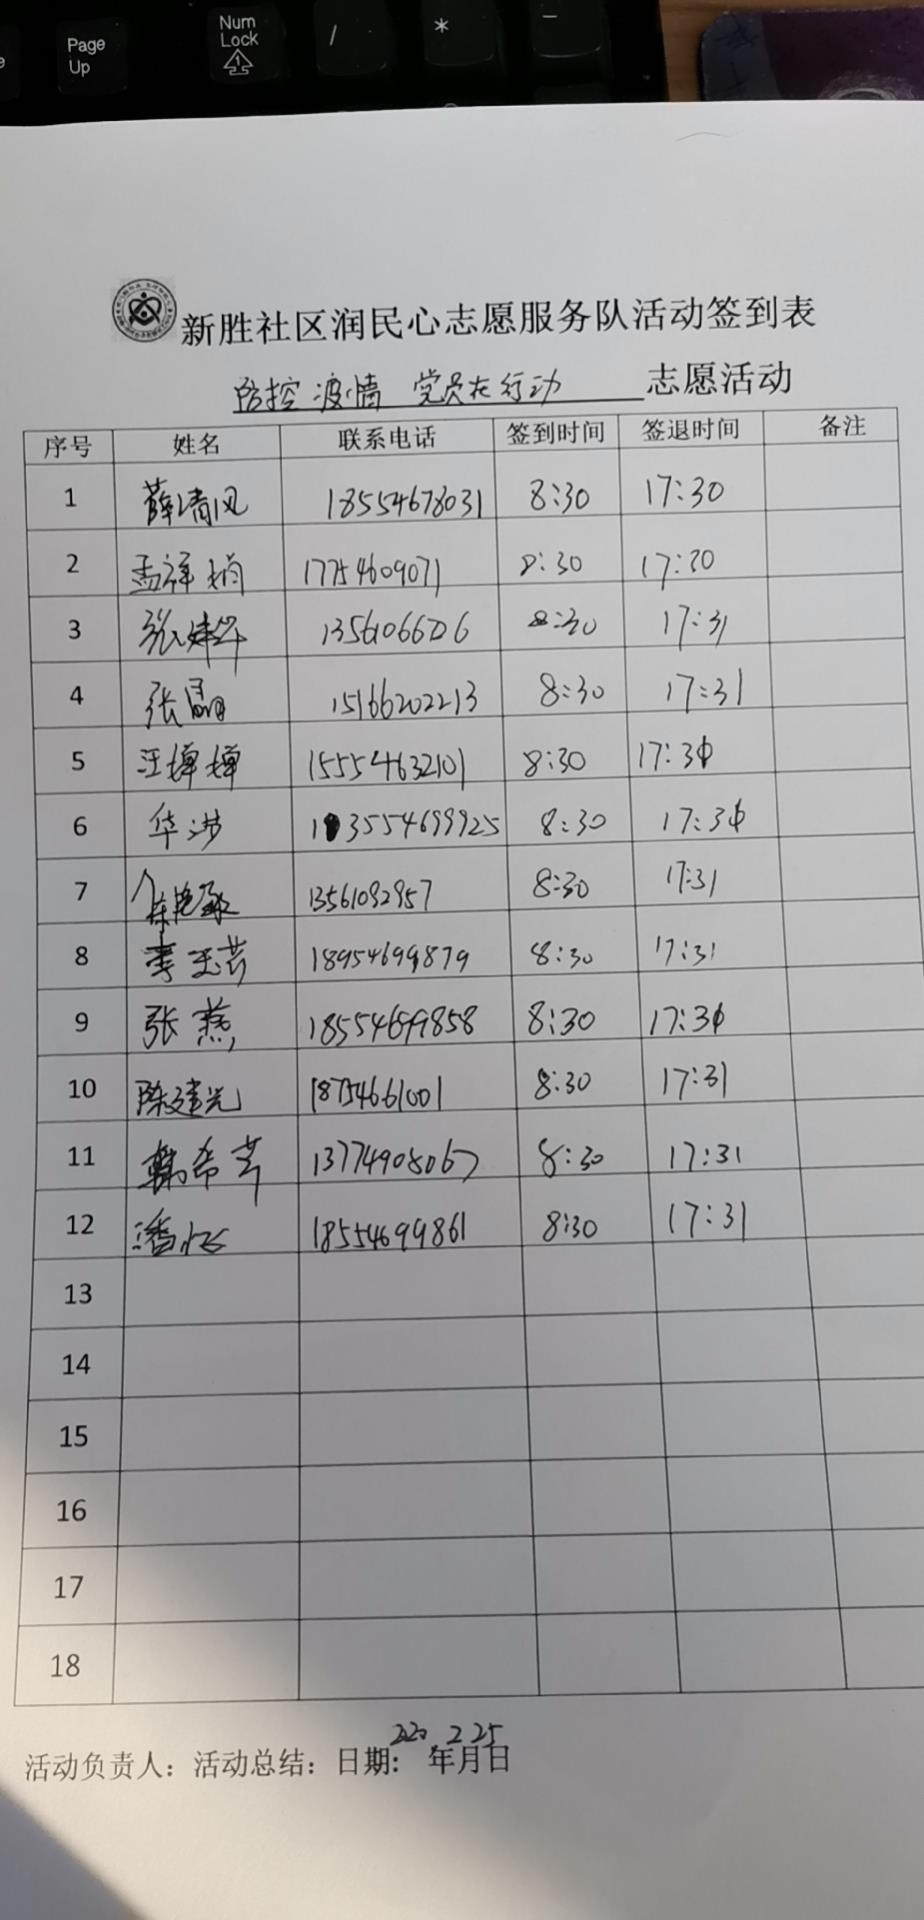 Page
Up
Num
Lock
1
/
*
−
新胜社区润民心志愿服务队活动签到表
防控疫情 党员在行动 志愿活动
序号 姓名 联系电话 签到时间 签退时间 备注
1 薛清风 18554678031 8:30 17:30
2 孟祥娟 17754609071 8:30 17:30
3 张建华 1356106626 8:30 17:31
4 张晶 15166202213 8:30 17:31
5 汪婵婵 15554632101 8:30 17:30
6 华涉 13554699925 8:30 17:30
7 13561092957 8:30 17:31
8 李玉芸 18954699879 8:30 17:31
9 张燕 18554699858 8:30 17:30
10 陈建光 18754661001 8:30 17:31
11 韩希芹 13774905067 8:30 17:31
12 潘 18554699861 8:30 17:31
13
14
15
16
17
18
活动负责人：活动总结：日期: 2020年2月25日